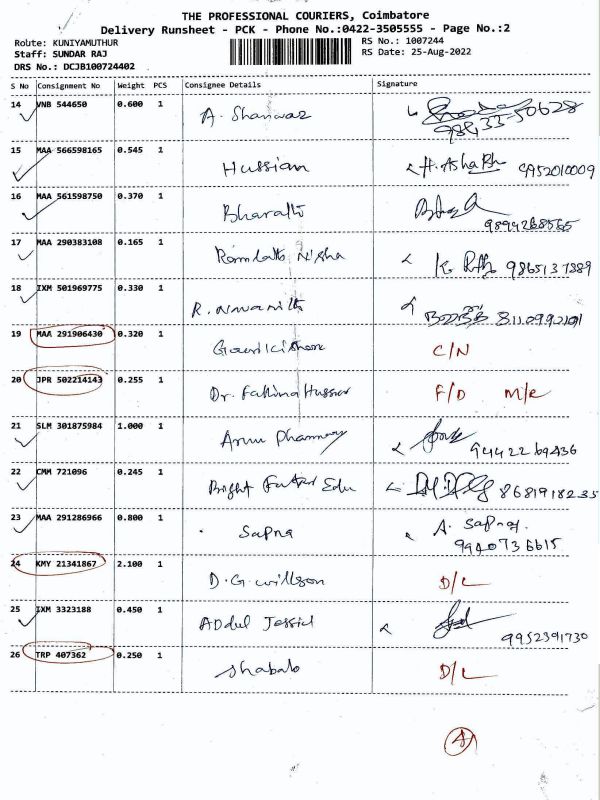 THE PROFESSIONAL COURIERS, Coimbatore
Delivery Runsheet - PCK - Phone No.:0422-3505555 - Page No.:2
Route: KUNIYAMUTHUR
Staff: SUNDAR RAJ
DRS No.: DCJB100724402
RS No.: 1007244
RS Date: 25-Aug-2022
S No Consignment No Weight PCS Consignee Details Signature
14 VNB 544650 0.600 1 A. Shanwaz
15 MAA 566598165 0.545 1 Hussian CA52010009
16 MAA 561598750 0.370 1 Bharath
17 MAA 290383108 0.165 1 Nisha
18 IXM 501969775 0.330 1 R.
19 MAA 291906430 0.320 1 C/N
20 JPR 502214143 0.255 1 Dr. Fathima F/D
21 SLM 301875984 1.000 1 Pharmacy
22 CMM 721096 0.245 1 Bright Edu
23 MAA 291286966 0.800 1 Sapna A. Sapna
9940736615
24 KMY 21341867 2.100 1 D.G. Willson D/L
25 IXM 3323188 0.450 1 9952391730
26 TRP 407362 0.250 1 Shabab D/L
4